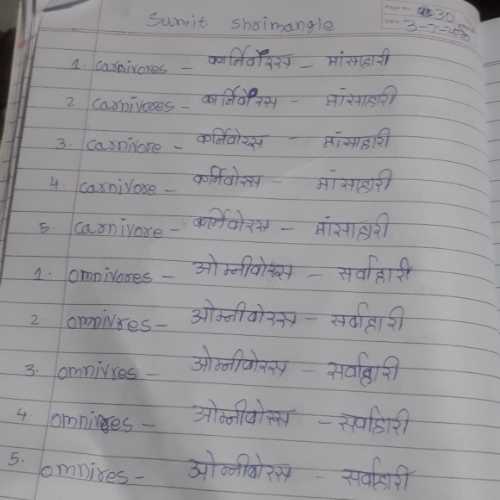 Sumit Shrimangle
30
3-7-
1. carnivores - कार्निवोरस - मांसाहारी
2 carnivores - कार्निवोरस - मांसाहारी
3. carnivore - कर्निवोरस - मांसाहारी
4. carnivore - कर्निवोरस - मांसाहारी
5 carnivore - कर्निवोरस - मांसाहारी
1. omnivores - ओम्नीवोरस - सर्वाहारी
2 omnivres - ओम्नीवोरस - सर्वाहारी
3. omnivres - ओम्नीवोरस - सर्वाहारी
4. omnires - ओम्नीवोरस - सर्वाहारी
5. omnires - ओम्नीवोरस - सर्वाहारी